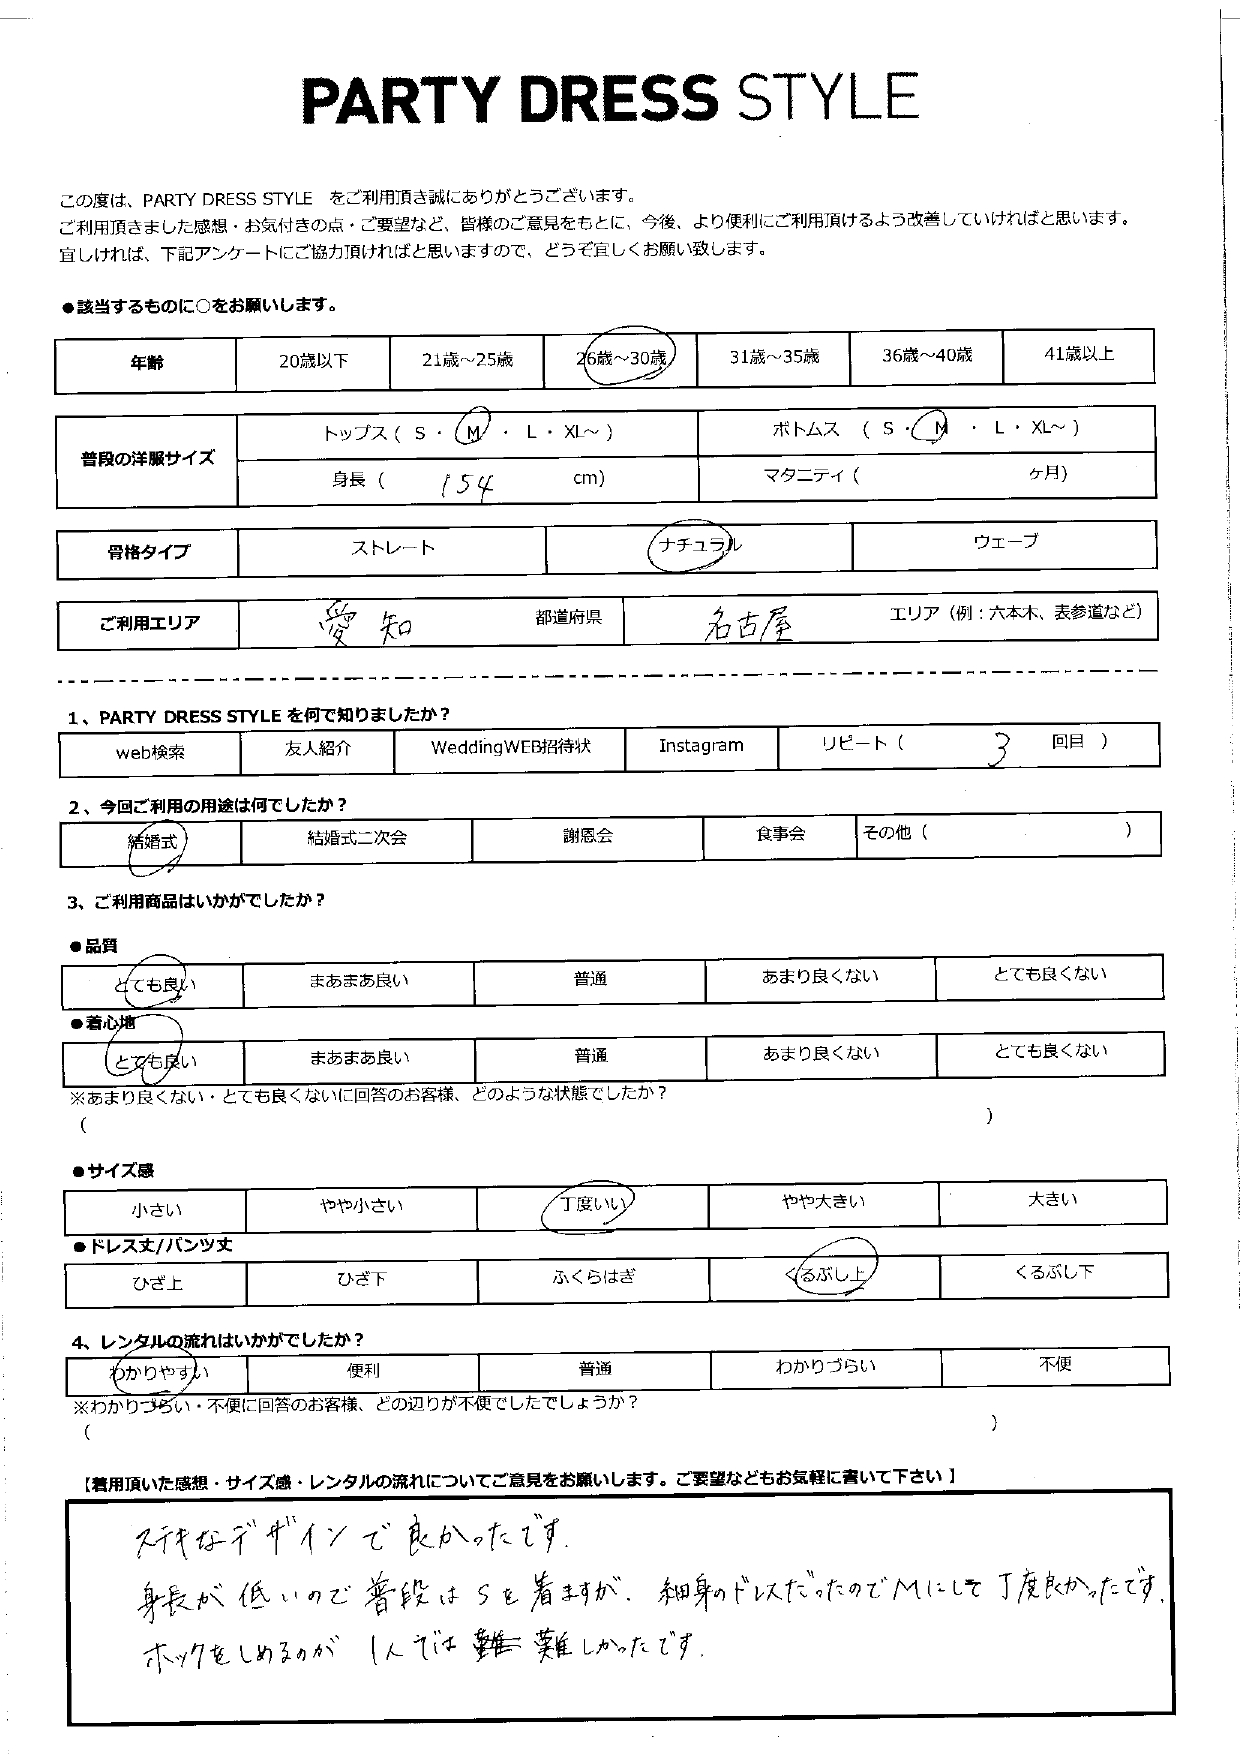 PARTY DRESS STYLE
この度は、PARTY DRESS STYLE をご利用頂き誠にありがとうございます。
ご利用頂きました感想・お気付きの点・ご要望など、皆様のご意見をもとに、今後、より便利にご利用頂けるよう改善していければと思います。
宜しければ、下記アンケートにご協力頂ければと思いますので、どうぞ宜しくお願い致します。
●該当するものに○をお願いします。
年齢 20歳以下 21歳～25歳 26歳～30歳 31歳～35歳 36歳～40歳 41歳以上
普段の洋服サイズ トップス( S ・ M ・ L ・ XL～ ) ボトムス ( S ・ M ・ L ・ XL～ )
身長 ( 154 cm) マタニティ ( ヶ月)
骨格タイプ ストレート ナチュラル ウェーブ
ご利用エリア 愛知 都道府県 名古屋 エリア (例：六本木、表参道など)
1、PARTY DRESS STYLE を何で知りましたか？
web検索 友人紹介 WeddingWEB招待状 Instagram リピート ( 3 回目 )
2、今回ご利用の用途は何でしたか？
結婚式 結婚式二次会 謝恩会 食事会 その他 ( )
3、ご利用商品はいかがでしたか？
●品質
とても良い まあまあ良い 普通 あまり良くない とても良くない
●着心地
とても良い まあまあ良い 普通 あまり良くない とても良くない
※あまり良くない・とても良くないに回答のお客様、どのような状態でしたか？
( )
●サイズ感
小さい やや小さい 丁度いい やや大きい 大きい
●ドレス丈/パンツ丈
ひざ上 ひざ下 ふくらはぎ くるぶし上 くるぶし下
4、レンタルの流れはいかがでしたか？
わかりやすい 便利 普通 わかりづらい 不便
※わかりづらい・不便に回答のお客様、どの辺りが不便でしたでしょうか？
( )
【着用頂いた感想・サイズ感・レンタルの流れについてご意見をお願いします。ご要望などもお気軽に書いて下さい】
ステキなデザインで良かったです.
身長が低いので普段はSを着ますが. 細身のドレスだったのでMにして丁度良かったです.
ホックをしめるのが 1人では 難しかったです.